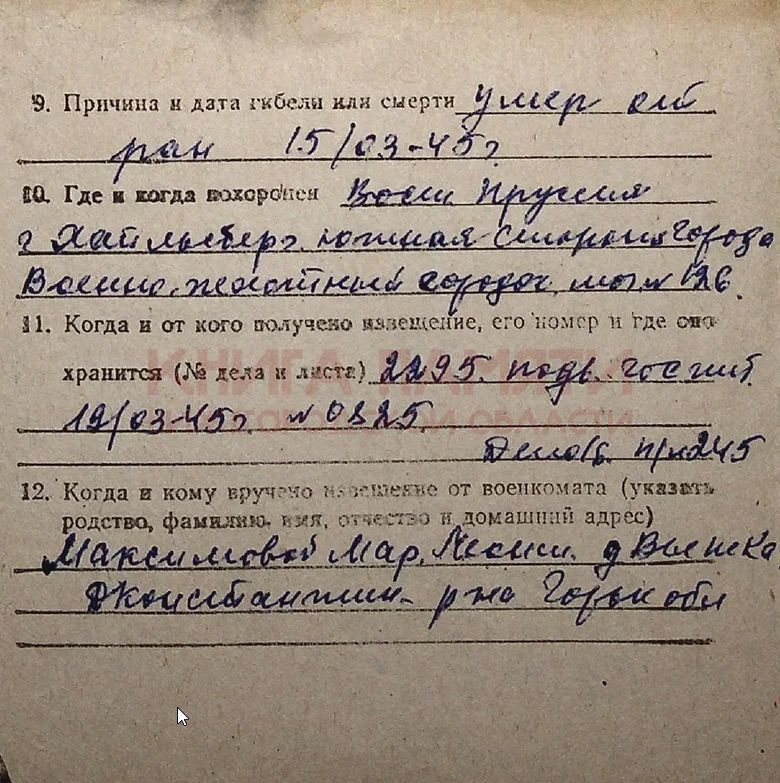 9. Причина и дата гибели или смерти умер от
ран 15/03-45г
10. Где и когда похоронен Вост. Пруссия
г Хайльсберг южная сторона города
Военно. городок, № 126
11. Когда и от кого получено извещение, его номер и где оно
хранится (№ дела и листа) 2295. подв. госпит.
19/03-45г. № 0825.
Дело 6. 245
12. Когда и кому вручено извещение от военкомата (указать
родство, фамилию, имя, отчество и домашний адрес)
Максимовой Мар. д
Константин- р на Горьк обл
КНИГА ПАМЯТИ
НИЖЕГОРОДСКОЙ ОБЛАСТИ